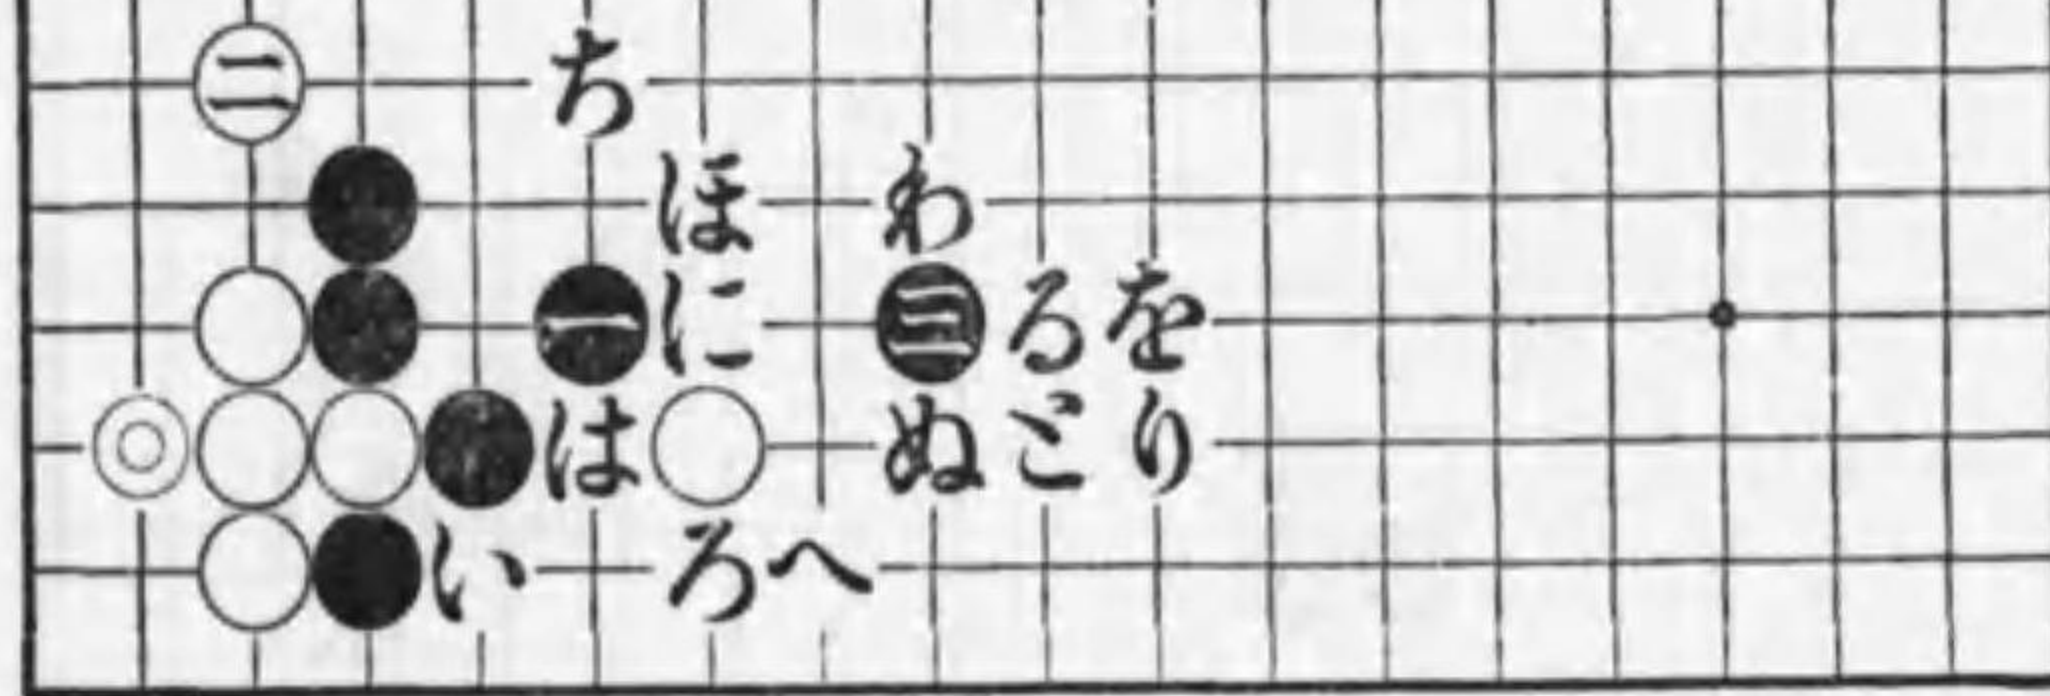 二 ち
ほ わ
一 に 三 る を
は ぬ と り
い ろ へ